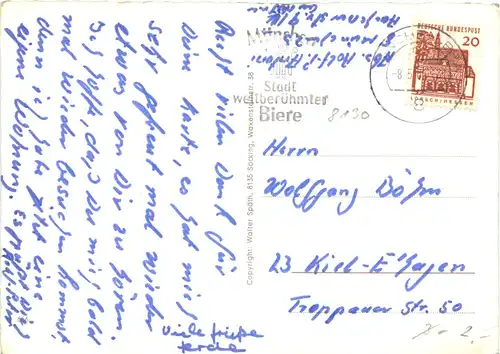 Abs. Rolf-J.
8 München
München
Stadt
weltberühmter
Biere
DEUTSCHE BUNDESPOST
20
LORSCH/HESSEN
8130
Recht vielen Dank für
Deine Karte, es hat mich
sehr gefreut mal wieder
etwas von Dir zu hören.
Ich hoffe, daß Du mich bald
mal wieder besuchen kommst,
denn ich habe jetzt eine
eigene Wohnung. Es grüßt Dich
Viele Grüße
Copyright: Walter Späth, 8135 Söcking, Waxensteinstr. 38
Herrn
Wolfgang Böhm
23 Kiel-E'hagen
Troppauer Str. 50